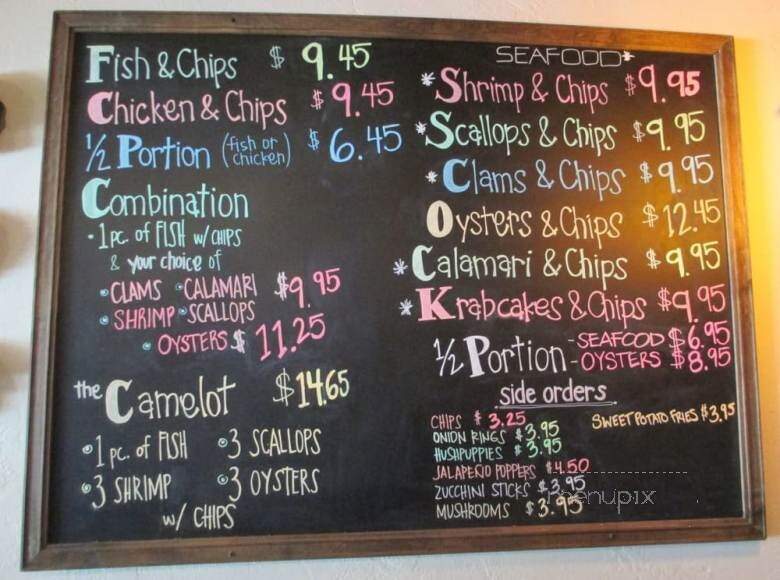 Fish & Chips $ 9.45
Chicken & Chips $ 9.45
1/2 Portion (fish or chicken) $ 6.45
Combination
• 1 pc. of FISH w/ CHIPS
& your choice of
• CLAMS • CALAMARI $9.95
• SHRIMP • SCALLOPS
• OYSTERS $ 11.25
the Camelot $14.65
• 1 pc. of FISH • 3 SCALLOPS
• 3 SHRIMP • 3 OYSTERS
w/ CHIPS
SEAFOOD*
* Shrimp & Chips $9.95
* Scallops & Chips $9.95
* Clams & Chips $9.95
Oysters & Chips $12.45
* Calamari & Chips $9.95
* Krabcakes & Chips $9.95
1/2 Portion - SEAFOOD $6.95
OYSTERS $8.95
side orders
CHIPS $ 3.25
ONION RINGS $ 3.95
HUSHPUPPIES $ 3.95
JALAPEÑO POPPERS $4.50
ZUCCHINI STICKS $3.95
MUSHROOMS $3.95
SWEET POTATO FRIES $3.95
menupix